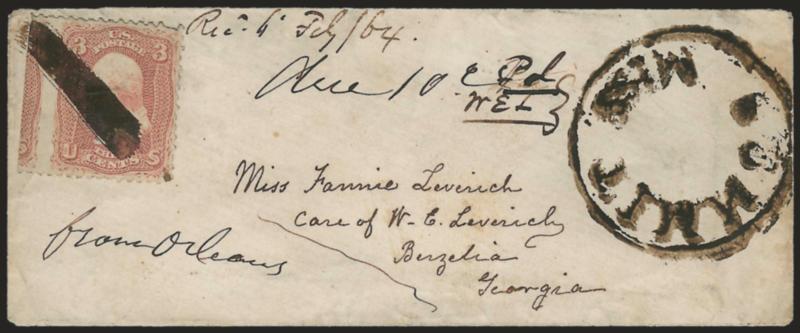 Rec. 6 Feby/64.
3 U.S. POSTAGE 3
U CENTS S
Due 10 c Pd
W E L
SUMMIT MISS
Miss Fannie Leverich
Care of W. E. Leverich
Berzelia
Georgia
from Orleans